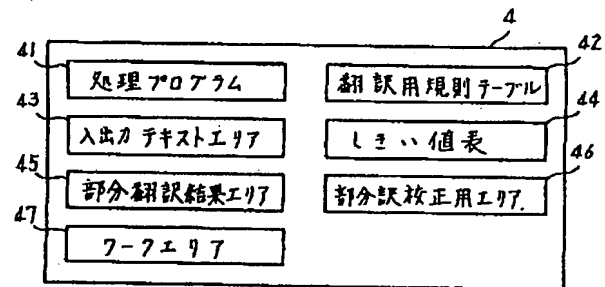 4
41 処理プログラム
42 翻訳用規則テーブル
43 入出力テキストエリア
44 しきい値表
45 部分翻訳結果エリア
46 部分訳校正用エリア.
47 ワークエリア